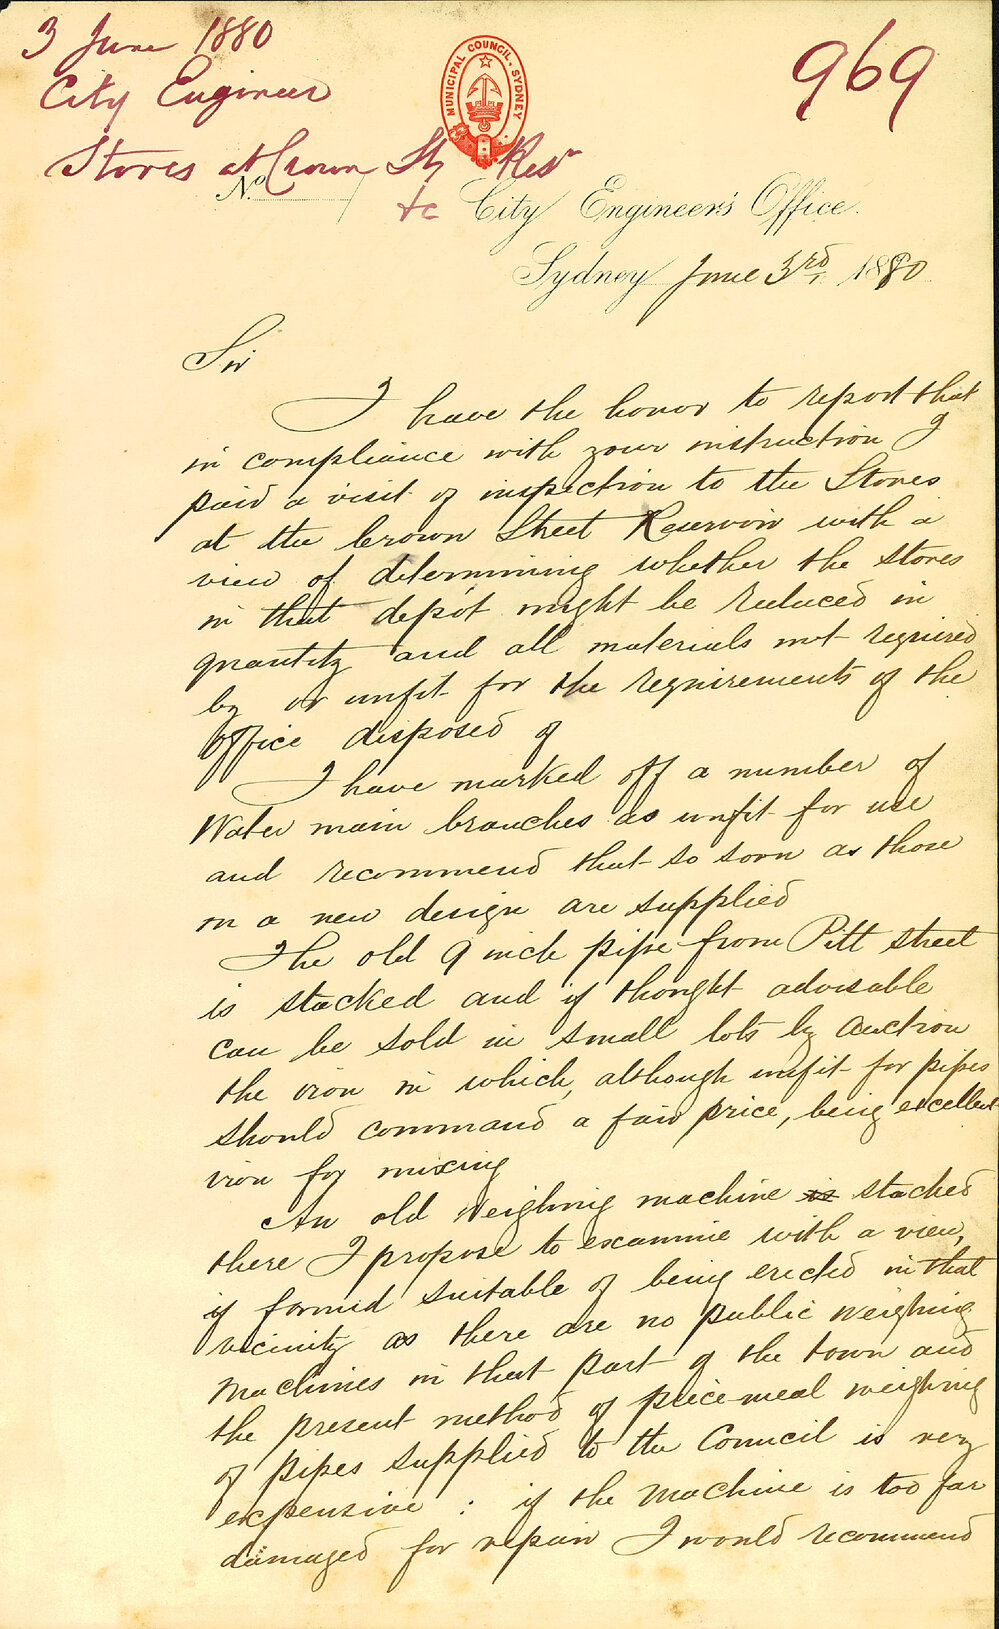 3 June 1880
969
City Engineer
MUNICIPAL COUNCIL, SYDNEY
Stores at Crown St Resr
&c
No.
City Engineer's Office.
Sydney June 3rd, 1880
Sir
I have the honor to report that
in compliance with your instruction I
paid a visit of inspection to the Stores
at the Crown Street Reservoir with a
view of determining whether the stores
in that depôt might be reduced in
quantity and all materials not required
by or unfit for the requirements of the
Office disposed of
I have marked off a number of
Water main branches as unfit for use
and recommend that so soon as those
on a new design are supplied
The old 9 inch pipe from Pitt street
is stacked and if thought advisable
can be sold in small lots by Auction
the iron in which, although unfit for pipes
should command a fair price, being excellent
iron for mixing
An old Weighing machine is stacked
there I propose to examine with a view,
if found suitable of being erected in that
vicinity as there are no public weighing
Machines in that part of the town and
the present method of piecemeal weighing
of pipes supplied to the Council is very
expensive : if the Machine is too far
damaged for repair I would recommend